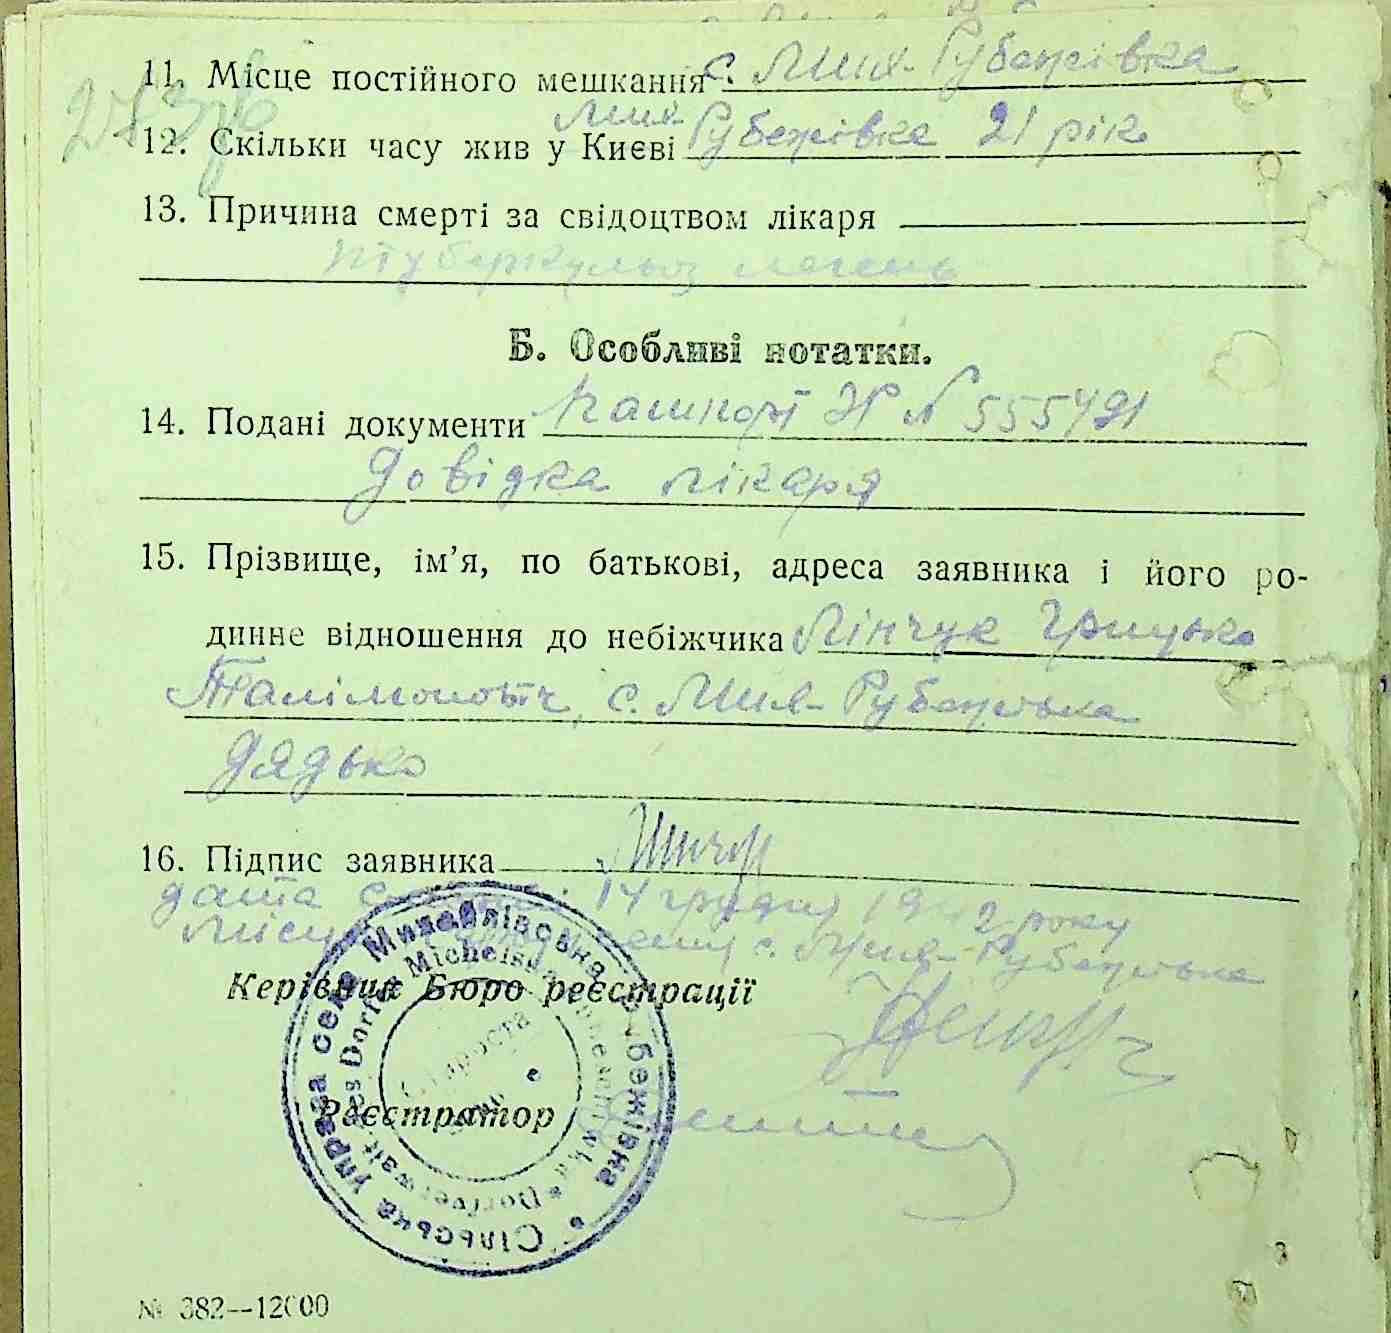 11. Місце постійного мешкання с. Мих-Рубежівка
Мих
12. Скільки часу жив у Києві Рубежівка 21 рік
13. Причина смерті за свідоцтвом лікаря
туберкульоз легень
Б. Особливі нотатки.
14. Подані документи пашпорт № 555491
Довідка лікаря
15. Прізвище, ім'я, по батькові, адреса заявника і його ро-
динне відношення до небіжчика Лінчук Грицько
с. Мих-Рубежівка
дядько
16. Підпис заявника
дата 14 грудня року
с. Мих-Рубежівка
Керівник Бюро реєстрації
Реєстратор
Сільська Управа села Михайлівська Рубежівна
Староста
№ 382--12000